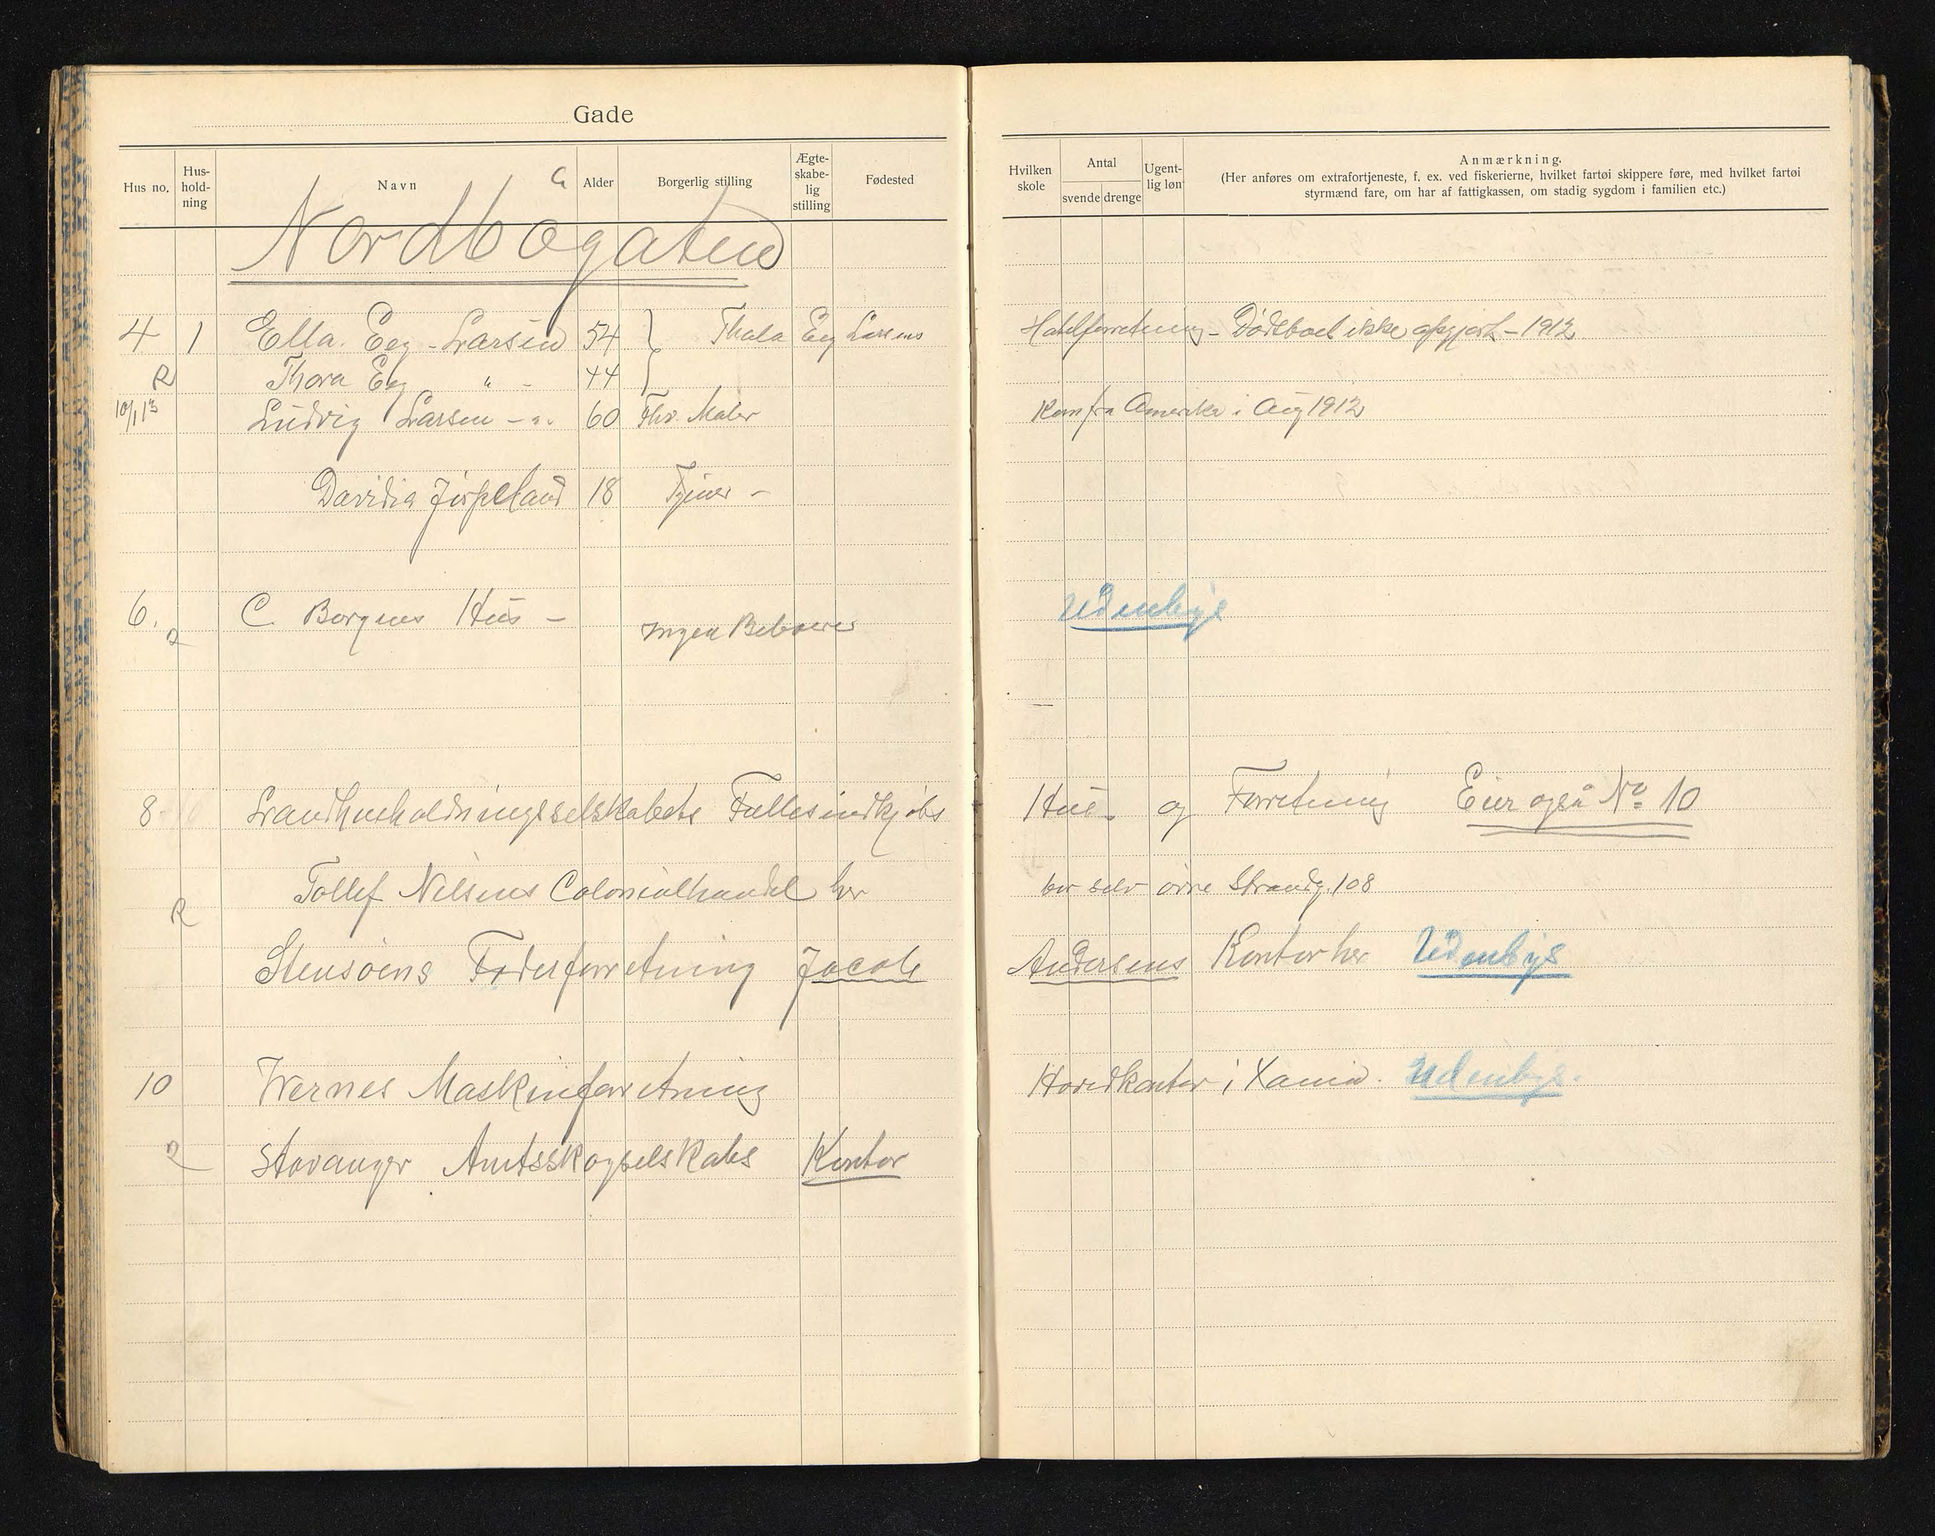 Gade
Hus no. Hus-hold-ning Navn Alder Borgerlig stilling Ægte-skabe-lig stilling Fødested
Hvilken skole Antal svende drenge Ugent-lig løn Anmærkning.
(Her anføres om extrafortjeneste, f. ex. ved fiskerierne, hvilket fartøi skippere føre, med hvilket fartøi
styrmænd fare, om har af fattigkassen, om stadig sygdom i familien etc.)
Nordbøgaten
4 1 Ella Eeg-Larsen 54 } Thala Eeg Larsens Hotelforretning - Dødsboet ikke opgjort - 1912
R Thora Eeg " - 44
10/1 13 Ludvig Larsen - " - 60 Fhv. Maler Kom fra Amerika i Aug 1912
Davidia Jørpeland 18 Tjener -
6. C. Borgens Hus - Ingen Beboere Udenbys
8 Landhusholdningsselskabets Fællesindkjøbs Hus- og Forretning Eier også No 10
Tollef Nilsens Colonialhandel her bor selv øvre Strandg. 108
R
Stensøens Foderforretning Jacob Andersens Kontor her Udenbys
10 Wernes Maskinforretning Hovedkontor i Xania. Udenbys.
Stavanger Amtsskogselskabs Kontor